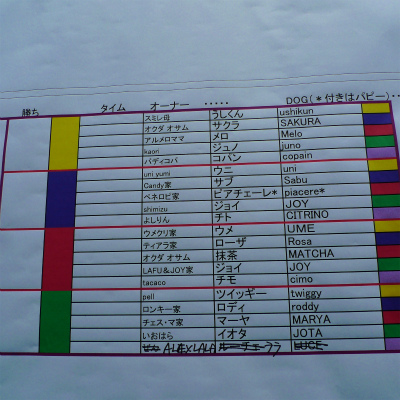 勝ち タイム オーナー ・・・・・ DOG(*付きはパピー)・・
スミレ母 うしくん ushikun
オクダ オサム サクラ SAKURA
アルメロママ メロ Melo
kaori ジュノ juno
パディコパ コパン copain
uni yumi ウニ uni
Candy家 サブ Sabu
ペネロピ家 ピアチェーレ* piacere*
shimizu ジョイ JOY
よしりん チト CITRINO
ウメクリ家 ウメ UME
ティアラ家 ローザ Rosa
オクダ オサム 抹茶 MATCHA
LAFU&JOY家 ジョイ JOY
tacaco チモ cimo
pell ツイッギー twiggy
ロンキー家 ロディ roddy
チェス・マ家 マーヤ MARYA
いおはら イオタ JOTA
ALEXLALA ルーチェ ララ LUCE